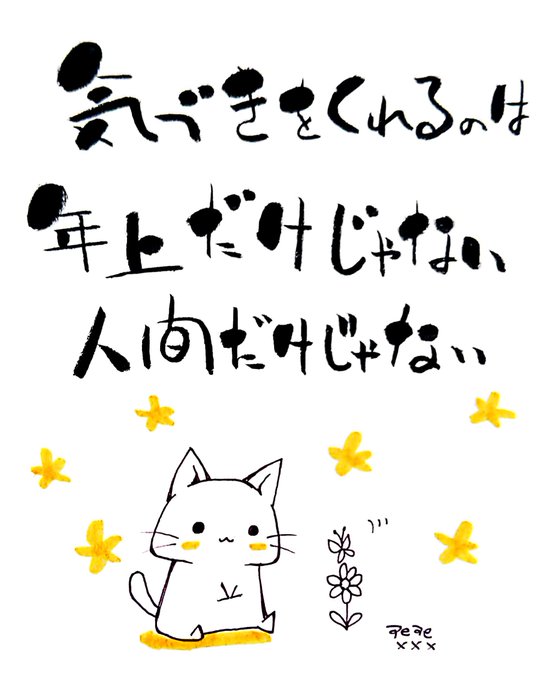 気づきをくれるのは
年上だけじゃない
人間だけじゃない
×××